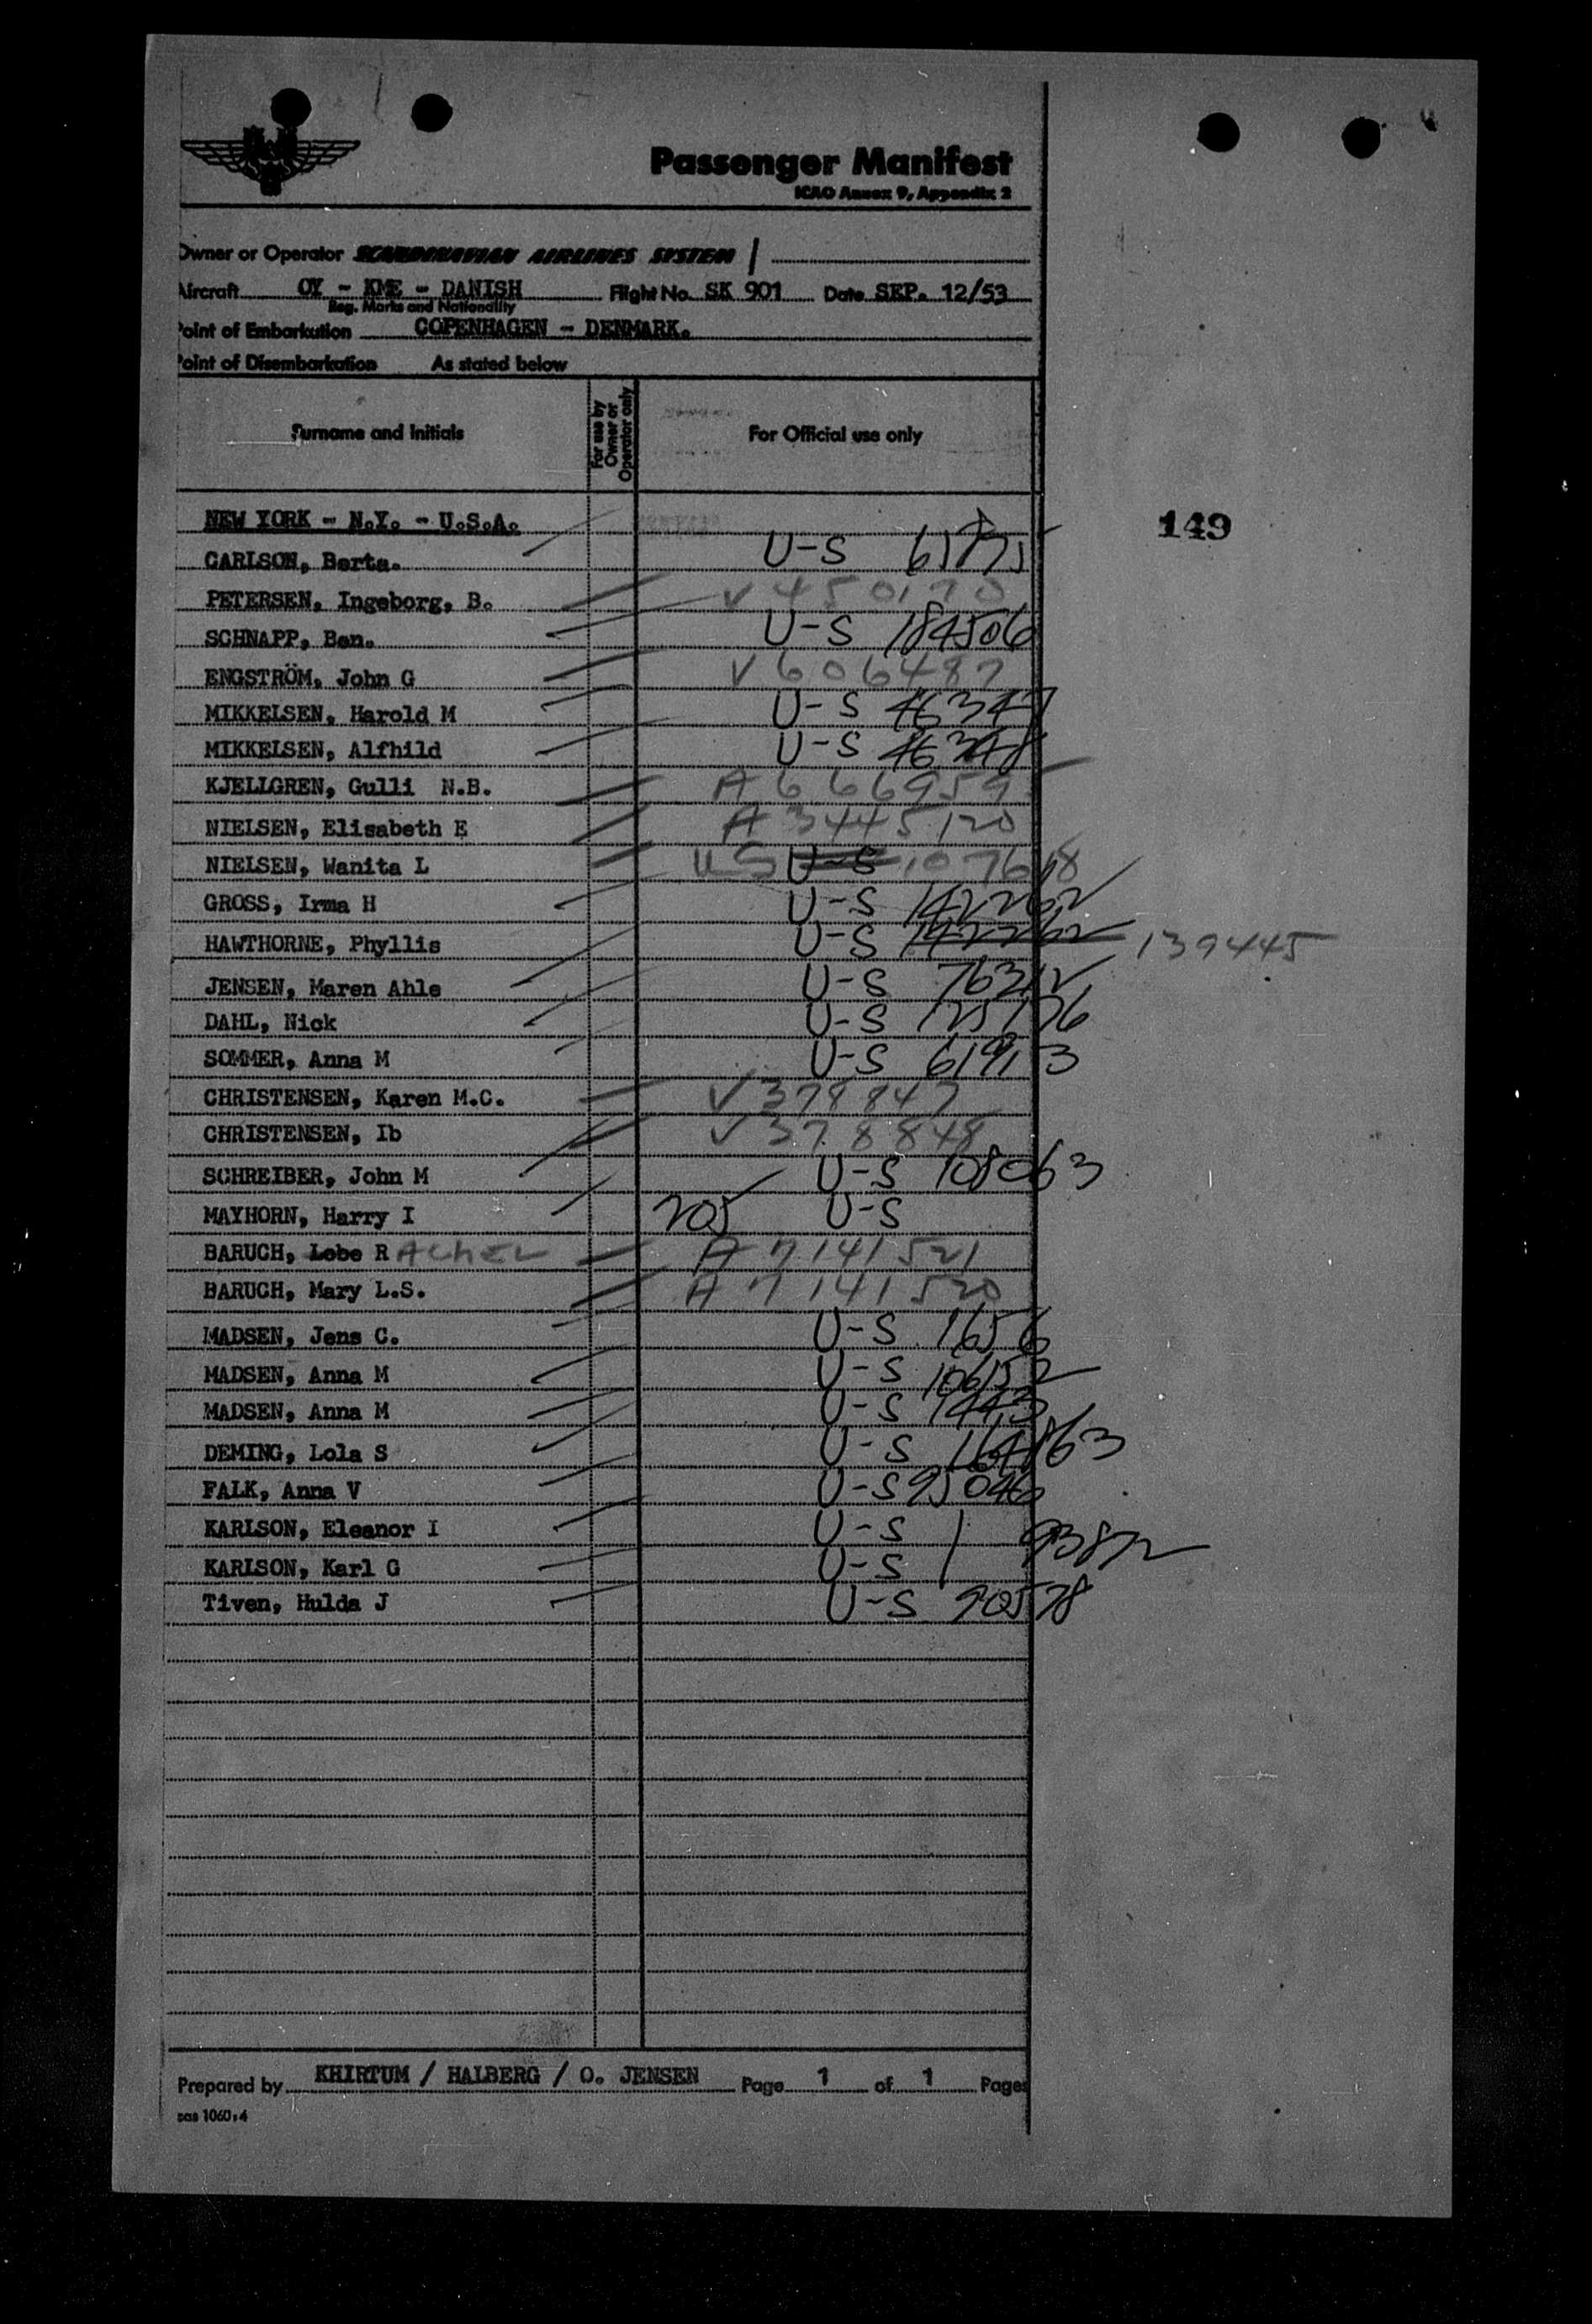 Passenger Manifest
ICAO Annex 9, Appendix 2
Owner or Operator SCANDINAVIAN AIRLINES SYSTEM
Aircraft OY - KME - DANISH Flight No. SK 901 Date SEP. 12/53
Reg. Marks and Nationality
Point of Embarkation COPENHAGEN - DENMARK.
Point of Disembarkation As stated below
Surname and Initials For use by Owner or Operator only For Official use only
NEW YORK - N.Y. - U.S.A. 149
CARLSON, Berta. U-S
PETERSEN, Ingeborg, B. V 450170
SCHNAPP, Ben. U-S 184506
ENGSTRÖM, John G V 606487
MIKKELSEN, Harold M U-S 46347
MIKKELSEN, Alfhild U-S 46348
KJELLGREN, Gulli N.B. A 6666959
NIELSEN, Elisabeth E A 3445120
NIELSEN, Wanita L US U-S 107618
GROSS, Irma H U-S 142262
HAWTHORNE, Phyllis U-S 142262 139445
JENSEN, Maren Ahle U-S 76312
DAHL, Nick U-S 125176
SOMMER, Anna M U-S 61913
CHRISTENSEN, Karen M.C. V 378847
CHRISTENSEN, Ib V 378848
SCHREIBER, John M U-S 108063
MAYHORN, Harry I 205 U-S
BARUCH, Lobe RACHEL A 7141521
BARUCH, Mary L.S. A 7141520
MADSEN, Jens C. U-S 1656
MADSEN, Anna M U-S 106152
MADSEN, Anna M U-S 1443
DEMING, Lola S U-S
FALK, Anna V U-S 95046
KARLSON, Eleanor I U-S 93872
KARLSON, Karl G U-S
Tiven, Hulda J U-S 90578
Prepared by KHIRTUM / HALBERG / O. JENSEN Page 1 of 1 Pages
sas 1060:4